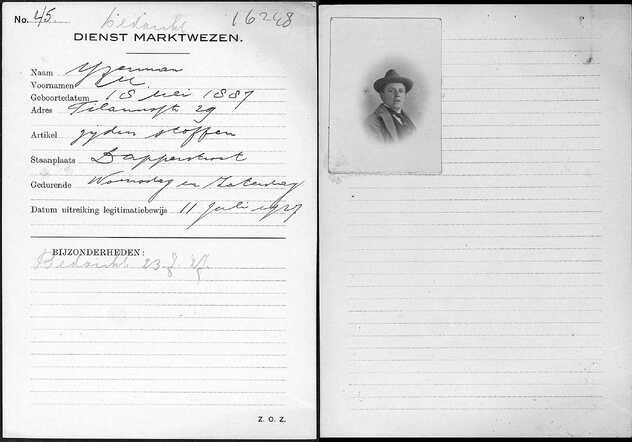 No. 45. Bedankt 16248
DIENST MARKTWEZEN.
Naam Yzerman
Voornamen M
Geboortedatum 18 Mei 1887
Adres 29
Artikel zijden stoffen
Staanplaats Dapperstraat
Gedurende Woensdag en Zaterdag
Datum uitreiking legitimatiebewijs 11 Juli 1927
BIJZONDERHEDEN:
Bedankt 23
Z. O. Z.